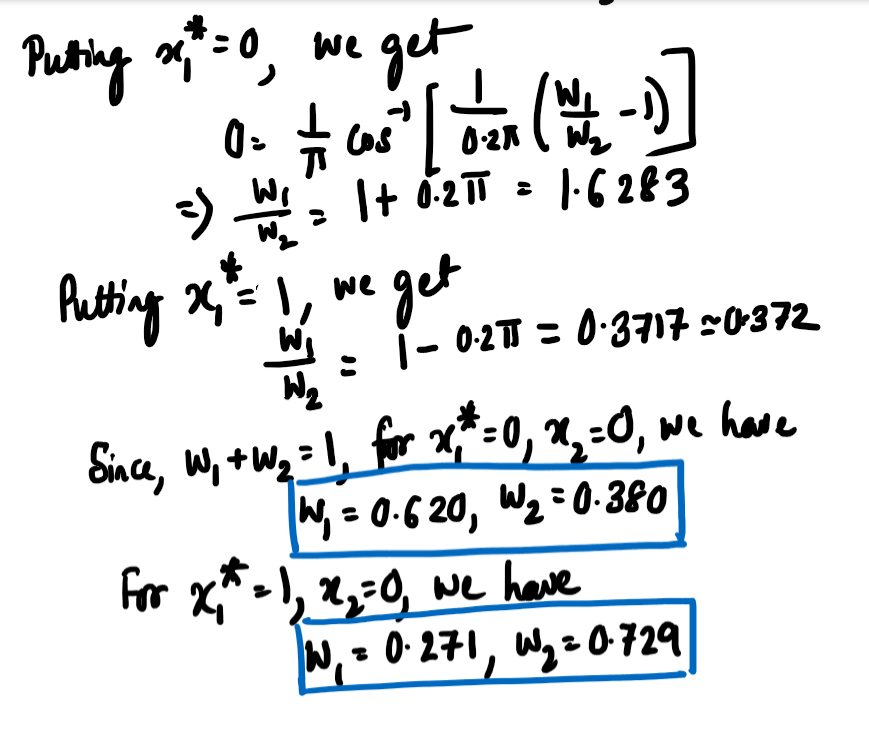 Putting x₁* = 0, we get
0 = 1/π cos⁻¹ [ 1/0.2π ( W₁/W₂ - 1 ) ]
⇒ W₁/W₂ = 1 + 0.2π = 1.6283
Putting x₁* = 1, we get
W₁/W₂ = 1 - 0.2π = 0.3717 ≃ 0.372
Since, W₁ + W₂ = 1, for x₁* = 0, x₂ = 0, we have
W₁ = 0.620, W₂ = 0.380
For x₁* = 1, x₂ = 0, we have
W₁ = 0.271, W₂ = 0.729